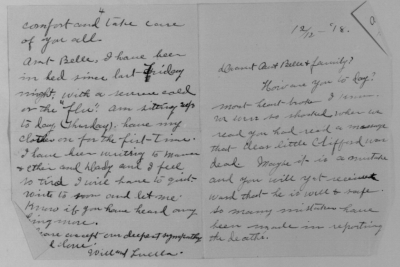 12/13 - '18.
Dearest Aunt Belle & family:
How are you to day?
most heart broke I know.
we were so shocked when we
read you had rec'd a message
that dear little Clifford was
dead. Maybe it is a mistake
and you will yet receive
word that he is well & safe.
So many mistakes have
been made in reporting
the deaths.
4
comfort and take care
of you all.
Aunt Belle, I have been
in bed since last Friday
night, with a severe cold
or the "flu". Am sitting up
to day (Thursday), have my
clothes on for the first time.
I have been writing to Mama
& Ether and Wlady and I feel
so tired I will have to quit.
Write to me soon and let me
know if you have heard any
thing more.
accept our deepest sympathy
& love.
Will & Luella.